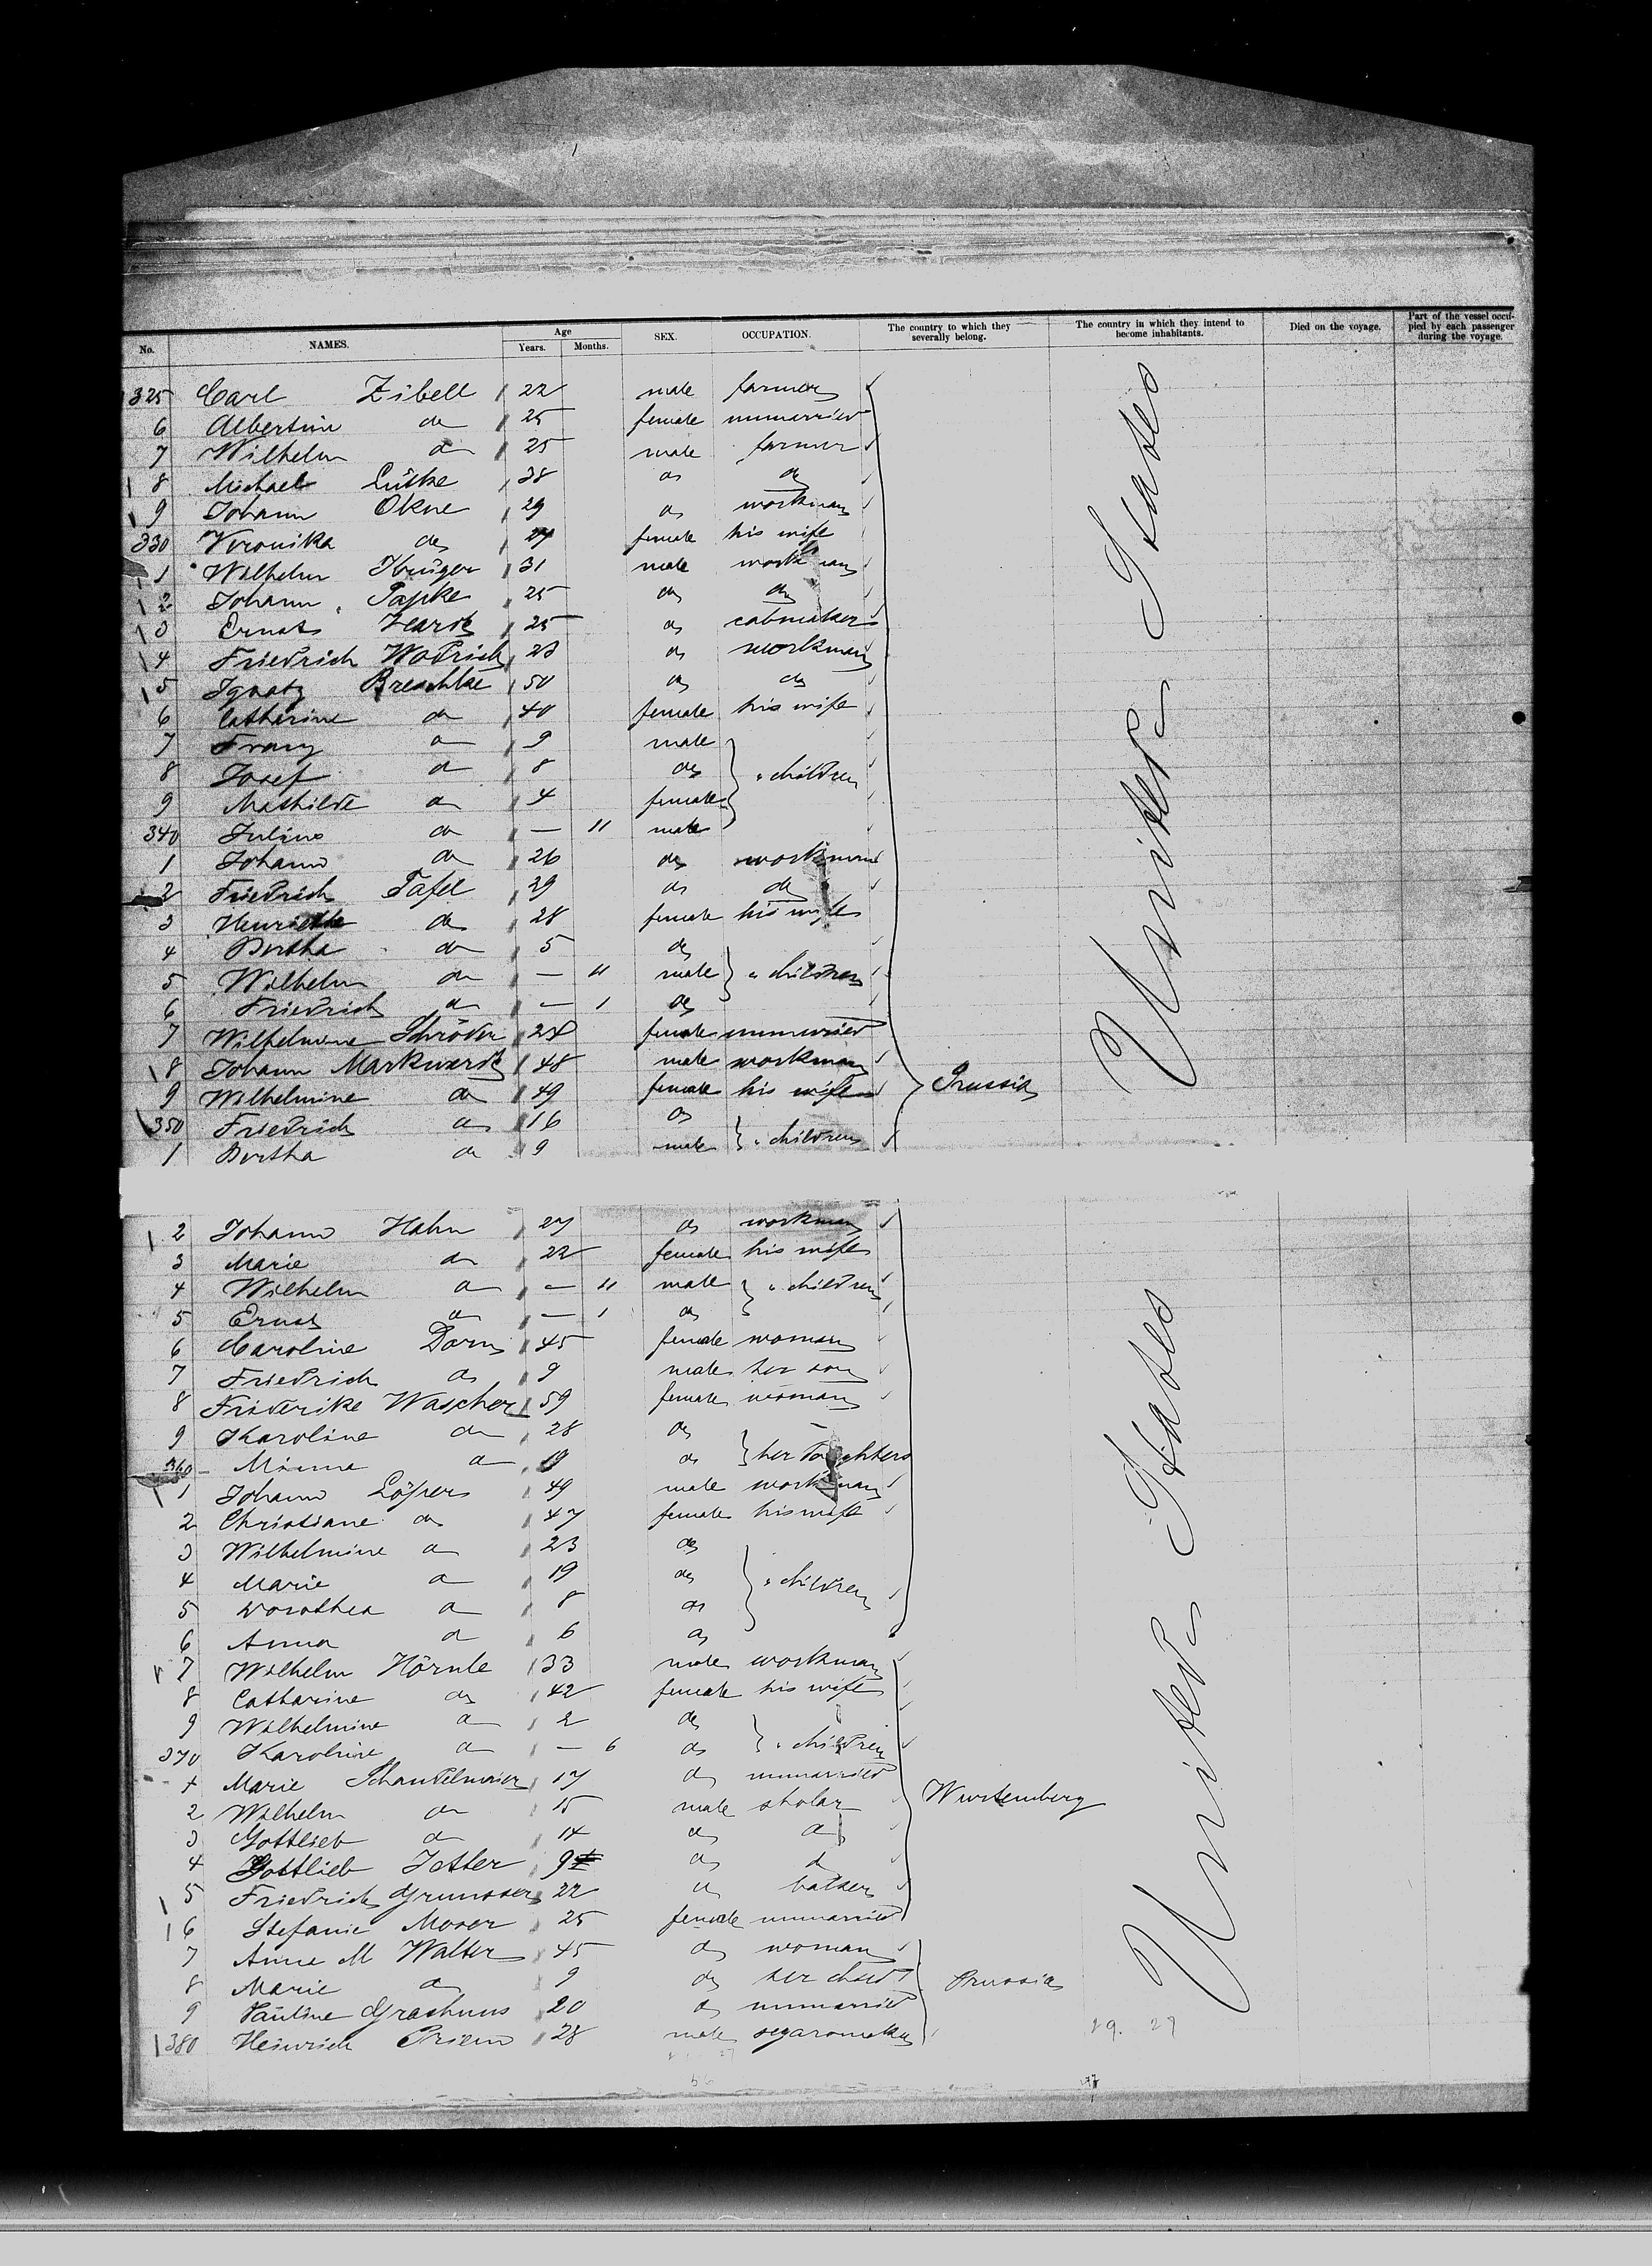 No. NAMES. Age Years. Months. SEX. OCCUPATION. The country to which they severally belong. The country in which they intend to become inhabitants. Died on the voyage. Part of the vessel occupied by each passenger during the voyage.
325 Carl Zibell 22 male farmer
6 Albertine do 25 female unmarried
7 Wilhelm do 25 male farmer
8 Michael Lüske 38 do do
9 Johann Okne 29 do workman
330 Veronika do 24 female his wife
1 Wilhelm Krüger 31 male workman
2 Johann Papke 25 do do
3 Ernst 25 do cabmaker
4 Friedrich Wodrich 23 do workman
5 Ignatz Breschke 50 do do
6 Catharine do 40 female his wife
7 Franz do 9 male
8 Josef do 8 do " children
9 Mathilde do 4 female
340 Julius do — 11 male
1 Johann do 26 do workman
2 Friedrich Tafel 29 do do
3 Henriette do 28 female his wife
4 Bertha do 5 do
5 Wilhelm do — 11 male " children
6 Friedrich do — 1 do
7 Wilhelmine Schröder 24 female unmarried
8 Johann Markwardt 48 male workman
9 Wilhelmine do 49 female his wife Prussia United States
350 Friedrich do 16 do
1 Bertha do 9 male " children
2 Johann Hahn 27 do workman
3 Marie do 22 female his wife
4 Wilhelm do — 11 male " children
5 Ernst do — 1 do
6 Caroline Dorn 45 female woman
7 Friedrich do 9 male her son
8 Friderike Wascher 59 female woman
9 Karoline do 28 do
360 Minna do 19 do her daughters
1 Johann Löfsers 49 male workman
2 Christiane do 47 female his wife
3 Wilhelmine do 23 do
4 Marie do 19 do " children
5 Dorothea do 8 do
6 Anna do 6 do
7 Wilhelm Hörnle 33 male workman
8 Catharine do 42 female his wife
9 Wilhelmine do 2 do
370 Karoline do — 6 do " children
1 Marie Schaudelmaier 17 do unmarried
2 Wilhelm do 15 male sholar Wurtemberg
3 Gottlieb do 14 do do
4 Gottlieb Jetter 9 do do
5 Friedrich 22 do baker
6 Stefanie Moser 25 female unmarried
7 Anne M Walter 45 do woman
8 Marie do 9 do her child Prussia United States
9 Pauline Grashuus 20 do unmarried
380 Heinrich Priem 28 male segaromaker
29. 27